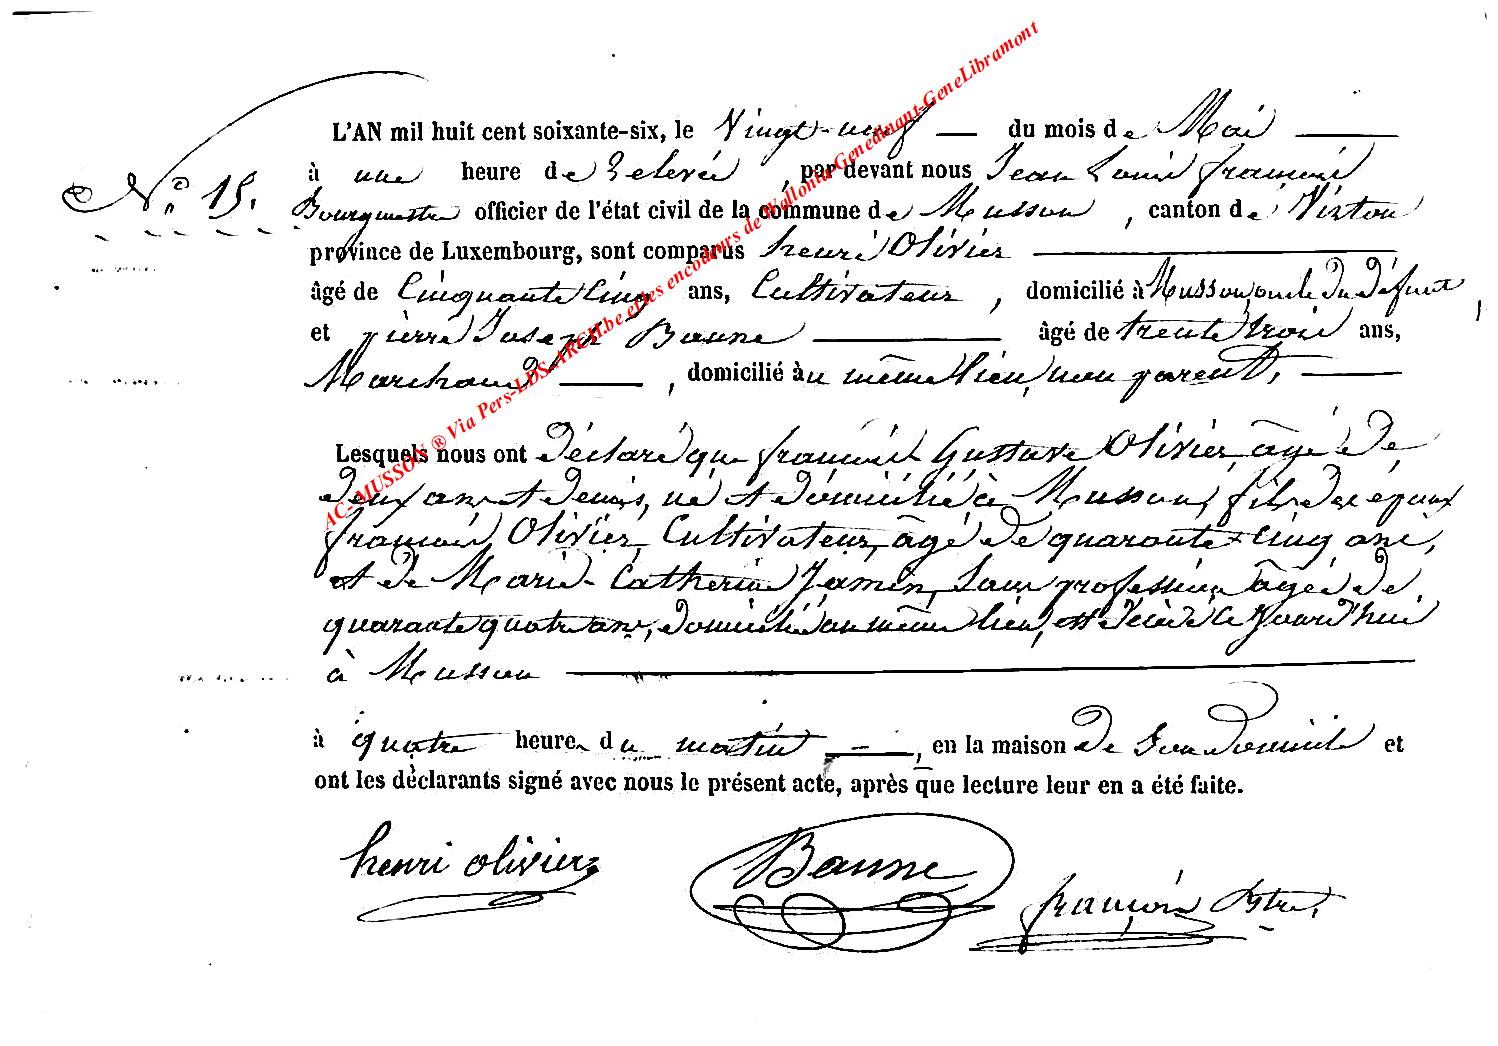 L'AN mil huit cent soixante-six, le Vingt-neuf du mois de Mai
N° 15. à une heure de relevée, par devant nous Jean Louis françois
Bourgmestre officier de l'état civil de la commune de Musson, canton de Virton
province de Luxembourg, sont comparus henri Olivier
âgé de Cinquante Cinq ans, Cultivateur, domicilié à Musson, oncle du défunt
et pierre Joseph Bonne âgé de trente trois ans,
Marchand, domicilié au même lieu, non parent,
Lesquels nous ont déclaré que françois Gustave Olivier, âgé de
deux ans et demis, né et domicilié à Musson, fils des epoux
françois Olivier, Cultivateur, âgé de quarante cinq ans,
et de Marie-Catherine Jamin, Sans profession âgée de
quarante quatre ans, domiciliés au même lieu, est décédé ce Jourd'hui
à Musson
à quatre heures du matin, en la maison de Son domicile et
ont les déclarants signé avec nous le présent acte, après que lecture leur en a été faite.
henri olivier Bonne françois
AC-MUSSON ® Via Pers-LDS-ARCH.be et les encodeurs de Wallonia-Genedinant-GeneLibramont